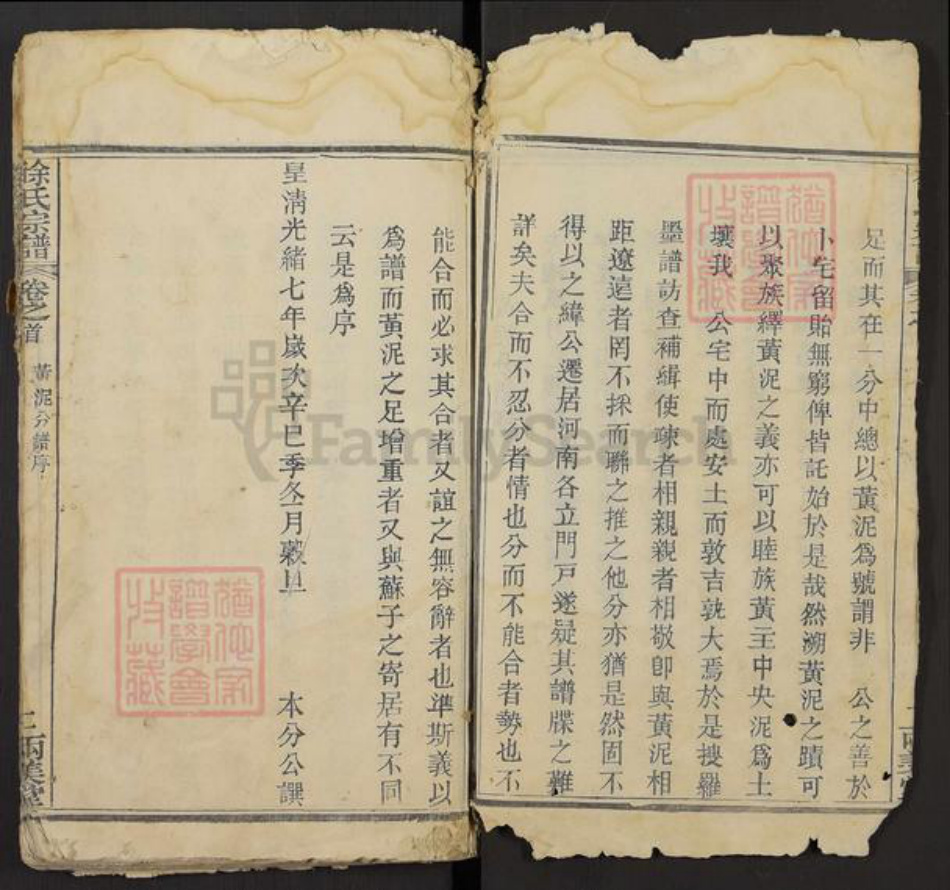 足而其在一分中總以黃泥爲號謂非　公之善於
卜宅留貽無窮俾皆託始於是哉然溯黃泥之蹟可
以聚族繹黃泥之義亦可以睦族黃王中央泥爲土
壤我　公宅中而處安土而敦吉孰大焉於是搜羅
墨譜訪查補緝使疎者相親親者相敬卽與黃泥相
距遼遠者罔不採而聯之推之他分亦猶是然固不
得以之緯公遷居河南各立門戸遂疑其譜牒之難
詳矣夫合而不忍分者情也分而不能合者勢也不
能合而必求其合者又誼之無容辭者也準斯義以
爲譜而黃泥之足增重者又與蘇子之寄居有不同
云是爲序
皇淸光緒七年歲次辛巳季冬月穀旦　本分公譔
徐氏宗譜　卷之首　黃泥分譜序　二　兩美堂
猶他家譜學會收藏
猶他家譜學會收藏
FamilySearch